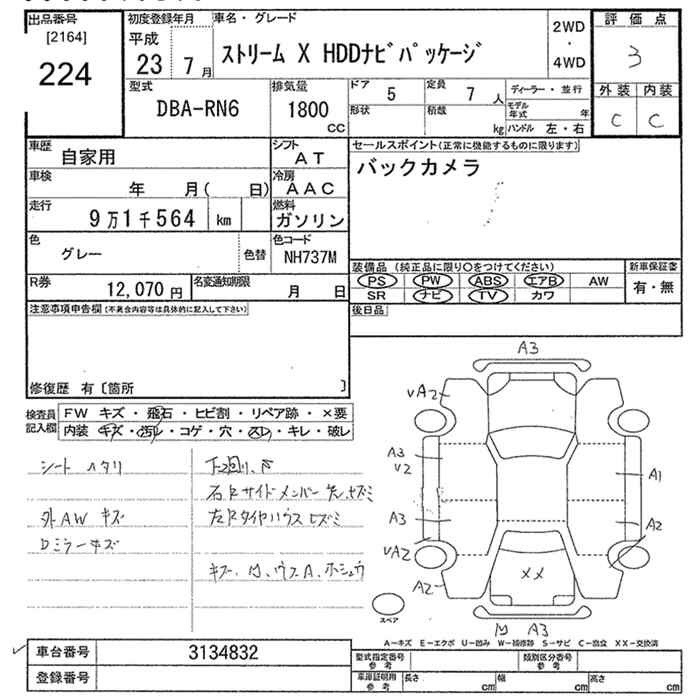 出品番号
[2164]
224
初度登録年月
平成
23 7月
車名・グレード
ストリーム X HDDナビパッケージ
2WD
・
4WD
評価点
3
外装 内装
C C
型式
DBA-RN6
排気量
1800
CC
ドア
5
定員
7人
ディーラー・並行
形状
積載
kg
モデル年式 年
ハンドル 左・右
車歴
自家用
シフト
AT
車検
年 月( 日)
冷房
AAC
走行
9万1千564 km
燃料
ガソリン
色
グレー
色替
色コード
NH737M
R券
12,070円
名変通知期限
月 日
セールスポイント(正常に機能するものに限ります)
バックカメラ
装備品 (純正品に限り〇をつけてください)
PS PW ABS エアB AW
SR ナビ TV カワ
新車保証書
有・無
後日品
注意事項申告欄(不具合内容等は具体的に記入して下さい)
修復歴 有〔箇所 〕
検査員記入欄
FW キズ・飛石・ヒビ割・リペア跡・×要
内装・キズ・汚レ・コゲ・穴・スレ・キレ・破レ
シートヘタリ
下回り、
右Rサイドメンバー先、ヒズミ
外AWキズ
左Rタイヤハウスヒズミ
Dミラーキズ
キズ、凹、ウスA、ホシュウ
A3
VA2
A3
V2
A1
A3
A2
VA2
××
A2
凹 A3
スペア
A-キズ E-エクボ U-凹み W-補修跡 S-サビ C-腐食 XX-交換済
車台番号
3134832
登録番号
型式指定番号
参考
類別区分番号
参考
車庫証明用
参考
長さ cm
幅 cm
高さ cm